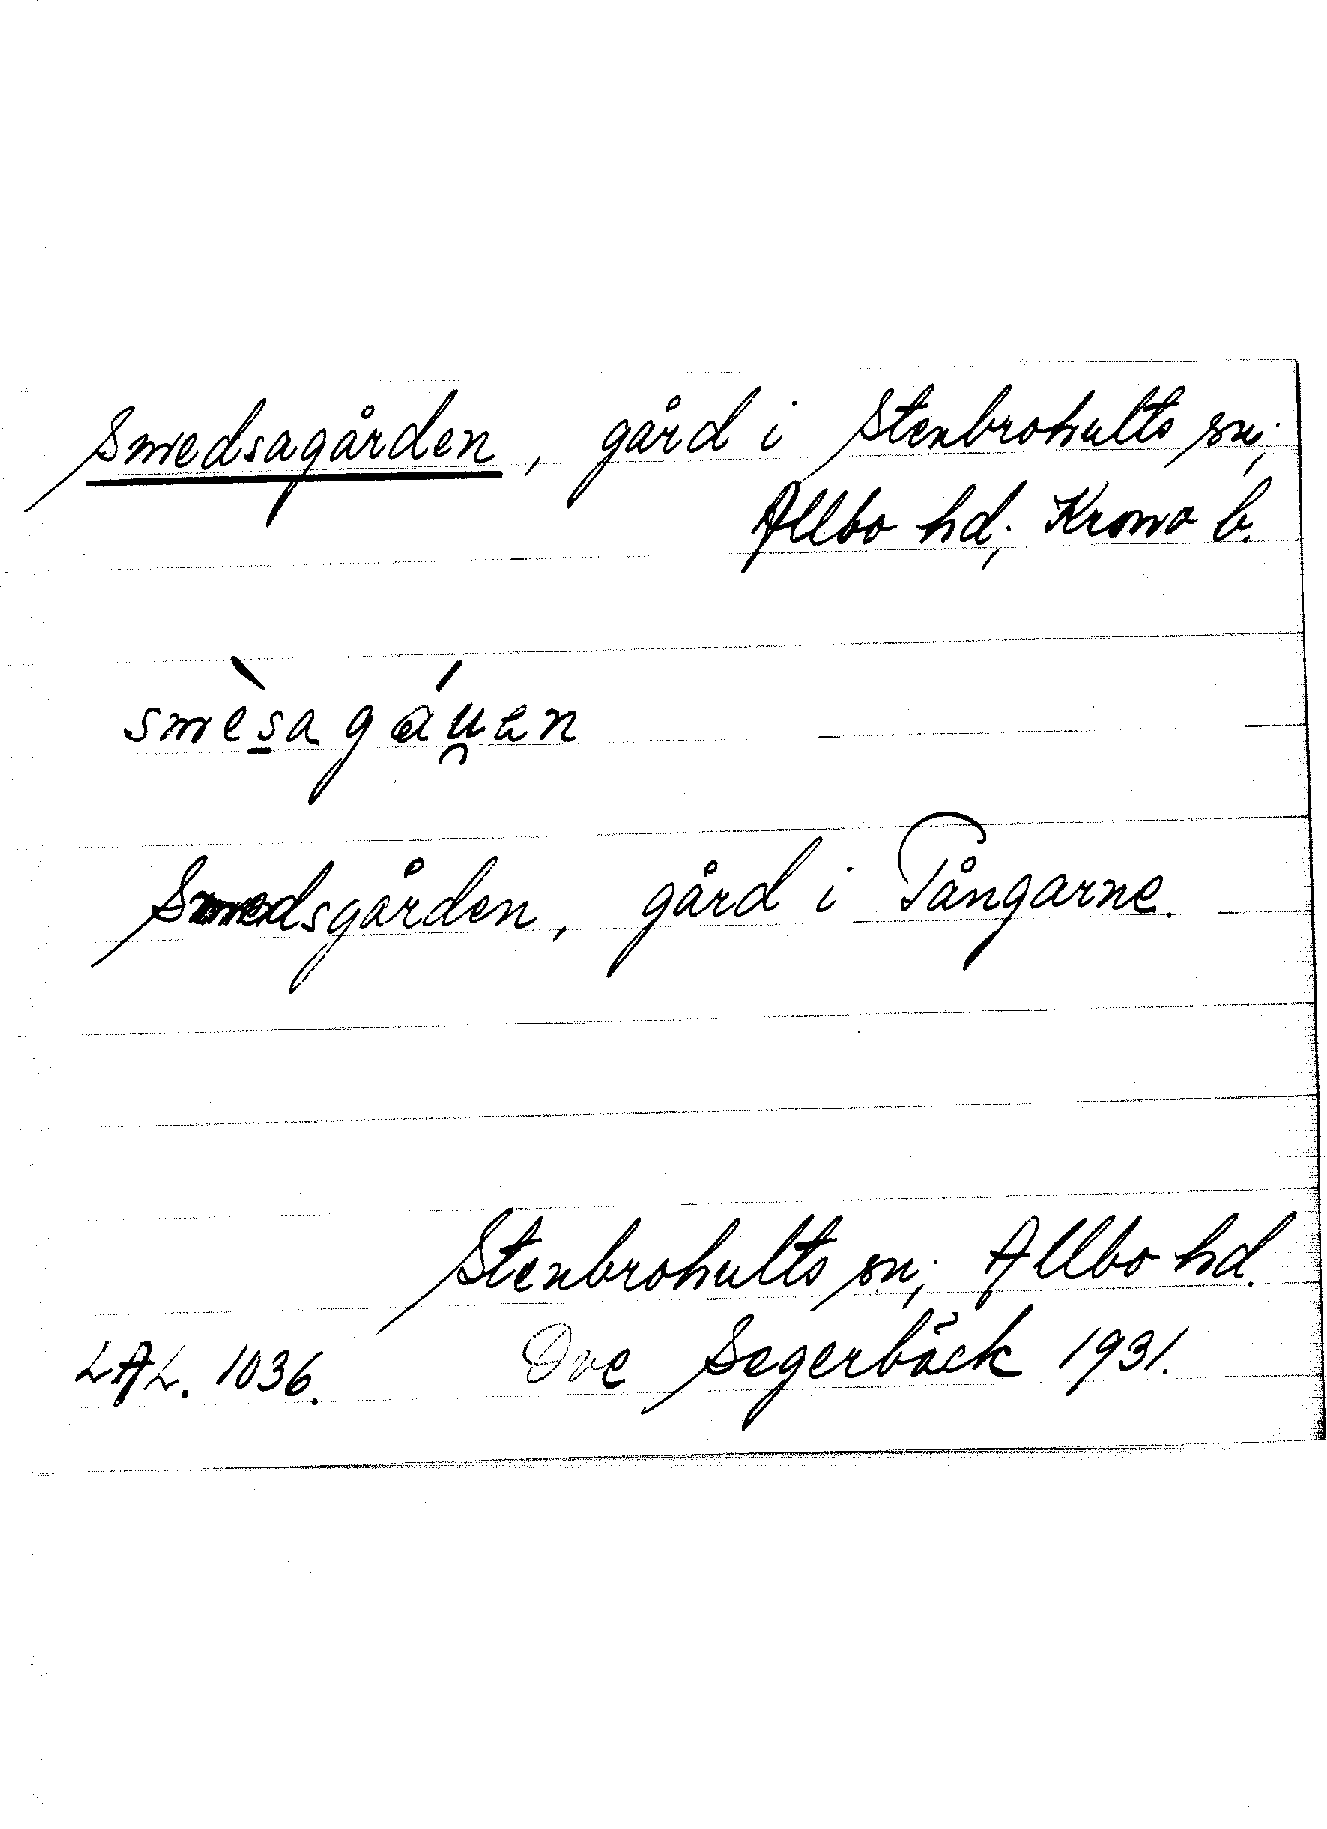 Smedsagården, gård i Stenbrohults sn;
Allbo hd; Krono b.
smèsagáu̯en
Smedsgården, gård i Tångarne.
Stenbrohults sn; Allbo hd.
LAL. 1036. Ove Segerbäck 1931.